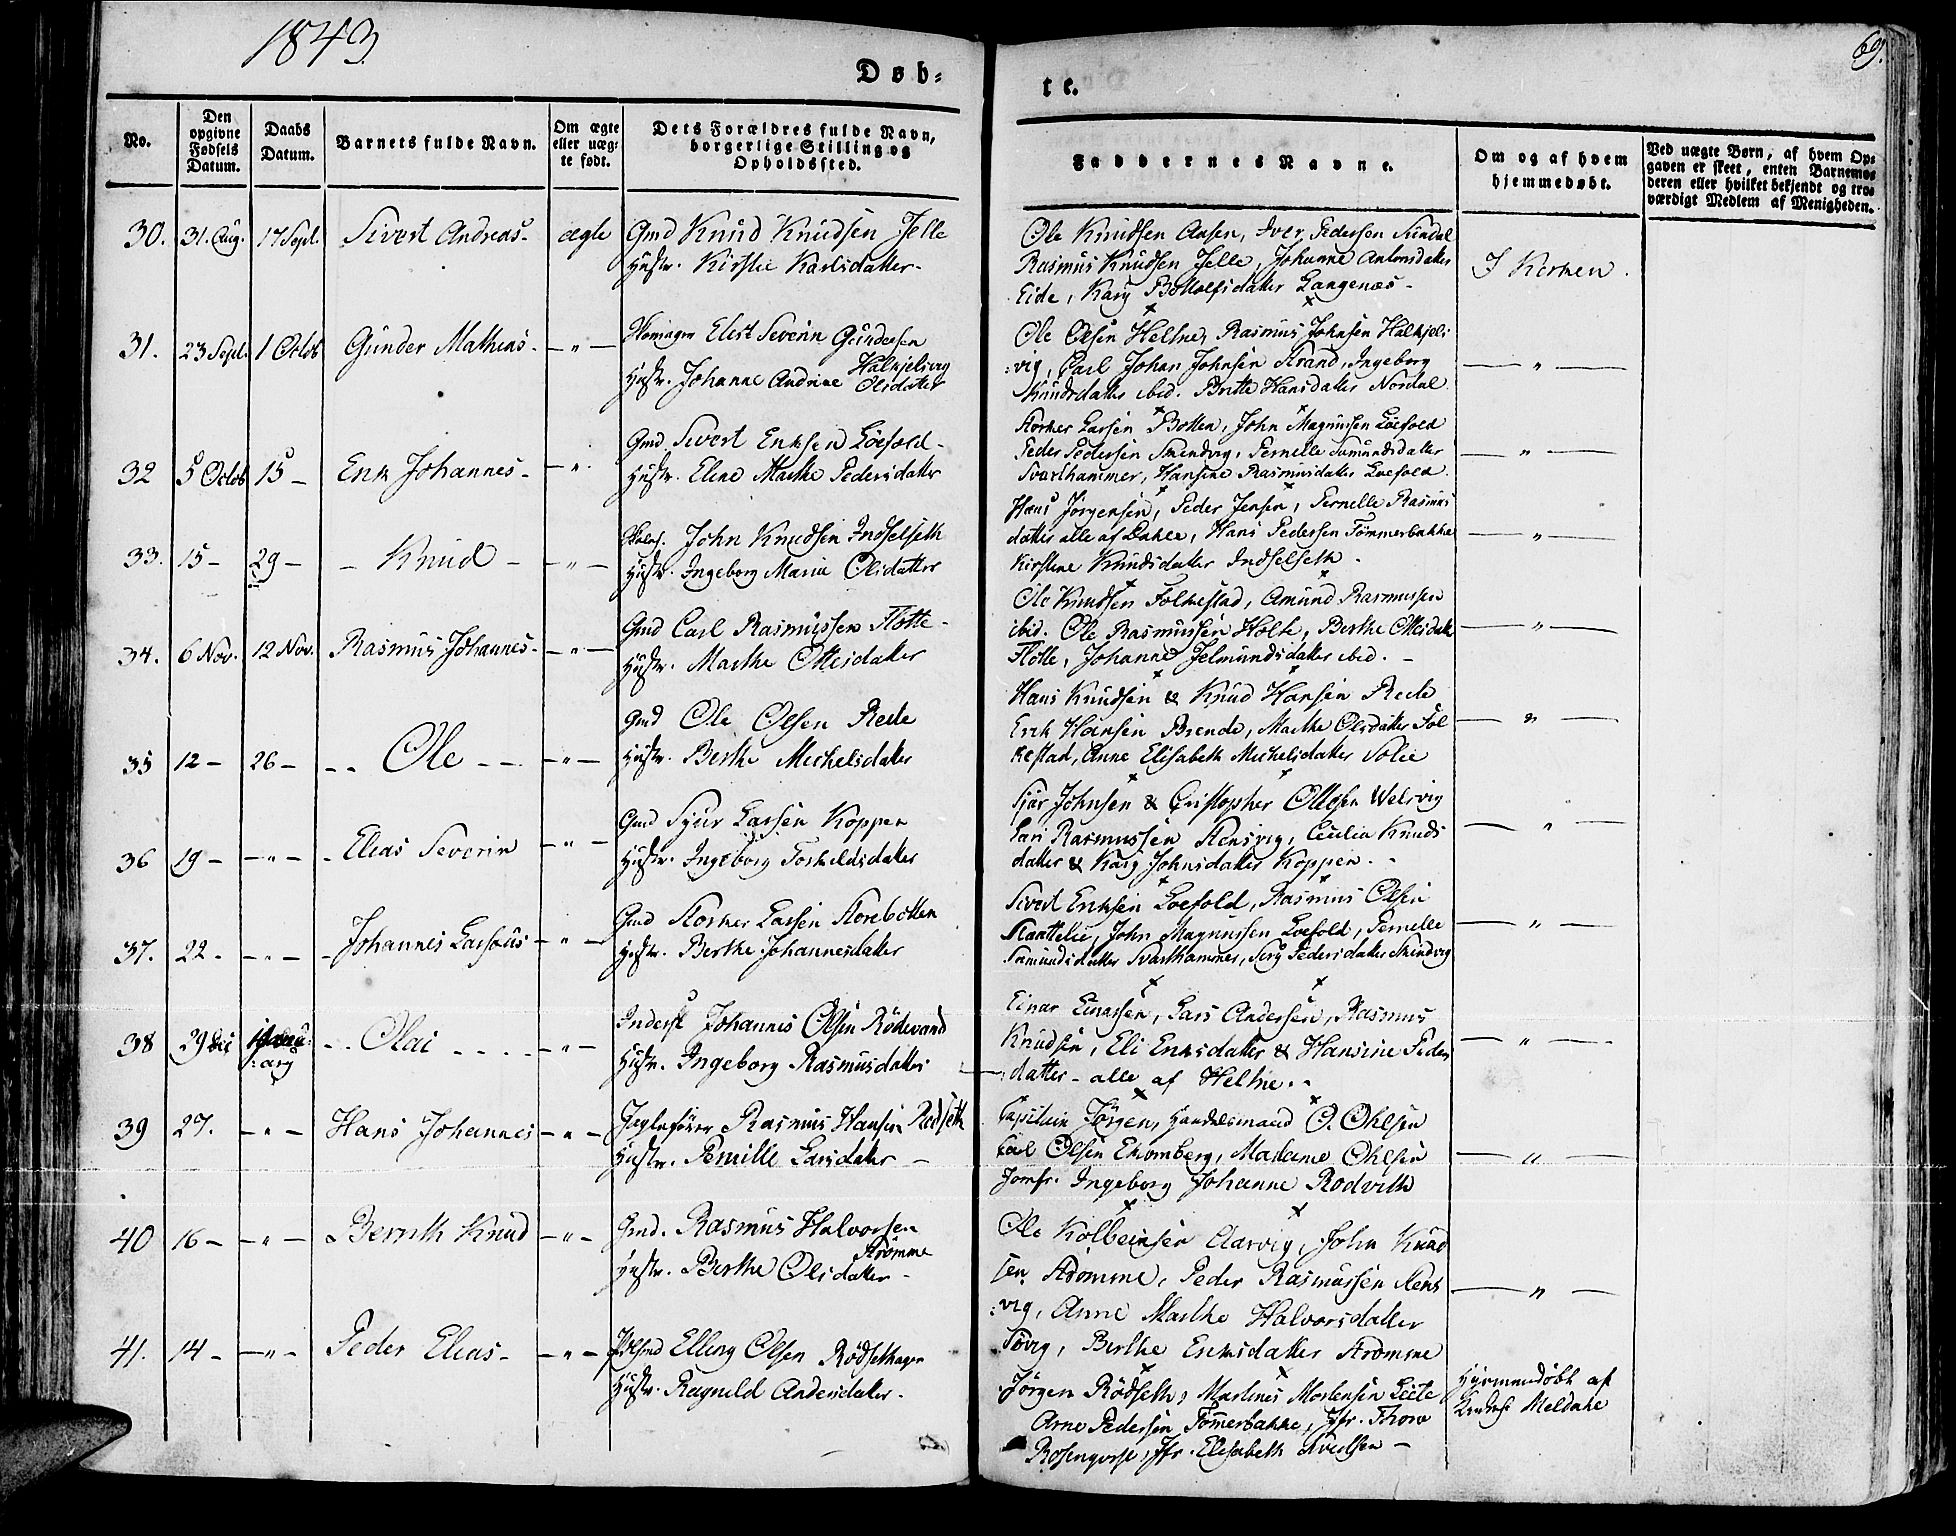 1843.
69.
Døb-
te.
No.
Den opgivne Fødsels Datum.
Daabs Datum.
Barnets fulde Navn.
Om ægte eller uæg-
te født.
Dets Forældres fulde Navn, borgerlige Stilling og Opholdssted.
Faddernes Navne.
Om og af hvem hjemmedøbt.
Ved uægte Børn, af hvem Op-
gaven er skeet, enten Barnemo-
deren eller hvilket bekjendt og tro-
værdigt Medlem af Menigheden.
30. 31. Aug. 17 Sept. Sivert Andreas- ægte Gmd Knud Knudsen Jelle
Hustr. Kirstie Karlsdatter-
Ole Knudsen Aasen, Iver Pedersen Sundal
Rasmus Knudsen Jelle, Johanne Antonsdatter
Eide, Kary Bottolfsdatter Langenæs-
I Kirken.
31. 23 Sept. 1 Octob Gunder Mathias- -"- Elert Severin Gundersen
Halkjelsvig
Hustr. Johanne Andrine Olsdatter
Ole Olsen Heltne, Rasmus Johnsen Halkjels-
:vig, Carl Johan Johnsen Strand, Ingeborg
Knudsdatter ibid. Britte Hansdatter Nordal
-"-
32 5 Octob 15- Erik Johannes- -"- Gmd Sivert Eriksen Løefold-
Hustr. Eline Marthe Pedersdatter
Storker Larsen Botten, John Magnussen Løefold
Peder Pedersen Skindvig, Pernelle Samundsdatter
Svarthammer, Hansine Rasmusdatter Løefold.
-"-
33. 15- 29- - Knud - -"- John Knudsen Indselseth
Hustr. Ingeborg Marie Olsdatter
Hans Jørgensen, Peder Jensen, Pernelle Rasmus
datter alle af Dahle, Hans Pedersen Tømmerbakke
Kirstine Knudsdatter Indselseth-
-"-
34. 6 Nov. 12 Nov. Rasmus Johannes- -"- Gmd Carl Rasmussen Flotte-
Hustr. Marthe Ottesdatter
Ole Knudsen Folkestad, Amund Rasmussen
ibid. Ole Rasmussen Holte, Berthe Ottesdatter
Flotte, Johanne Jelmundsdatter ibid.-
-"-
35 12- 26- -- Ole -- -"- Gmd Ole Olsen Rede
Hustr. Berthe Michelsdatter
Hans Knudsen & Knud Hansen Rede
Erik Hansen Brende, Marthe Olsdatter Fol
kestad, Anne Elisabeth Michelsdatter Solie
-"-
36 19- -"- -Elias Severin -"- Gmd Sjur Larsen Koppen
Hustr. Ingeborg Torkildsdatter
Johnsen & Cristopher Ottesen Welsvig
Rasmussen Stensvig, Cecilia Knuds
datter & Kary Johnsdatter Koppen.-
-"-
37. 22- -"- -Johannes Larsæus- -"- Gmd Storker Larsen Storebotten
Hustr. Berthe Johannesdatter
Sivert Eriksen Loefold, Rasmus Olsen
John Magnussen Loefold, Pernelle
Samundsdatter Svarthammer, Siry Pedersdatter Skindvig
-"-
38 29 Dec -- Olai ---- -"- Inderst Johannes Olsen Rødevand
Hustr. Ingeborg Rasmusdatter
Einar Einarsen, Lars Andersen, Rasmus
Knudsen, Eli Eriksdatter & Hansine Peders
datter- alle af Heltne.-
-"-
39 27. -"- Hans Johannes -"- Rasmus Hansen Rødseth
Hustr. Pernille Larsdatter-
Capitain Jørgen, Handelsmand O. Ohlsen
Carl Olsen Ekornberg, Madame Ohlsen
Jomfr. Ingeborg Johanne Rodvith
-"-
40 16- -"- Bernth Knud -"- Gmd. Rasmus Halvorsen
Strømme
Hustr. Berthe Olsdatter-
Ole Kolbeinsen Aarvig, John Knud
sen Strømme, Peder Rasmussen Stens
:vig, Anne Marthe Halvorsdatter
Berthe Eriksdatter Strømme
-"-
41. 14- -"- Peder Elias- -"- Elling Olsen Rødsethagen
Hustr. Ragnild Andersdatter-
Jørgen Rødseth, Martines Mortensen Leete
Arne Pedersen Tømerbakke, Jfr. Thora
Rosenqvist, Jfr. Elisabeth
Hjemmedøbt af
Meldahe